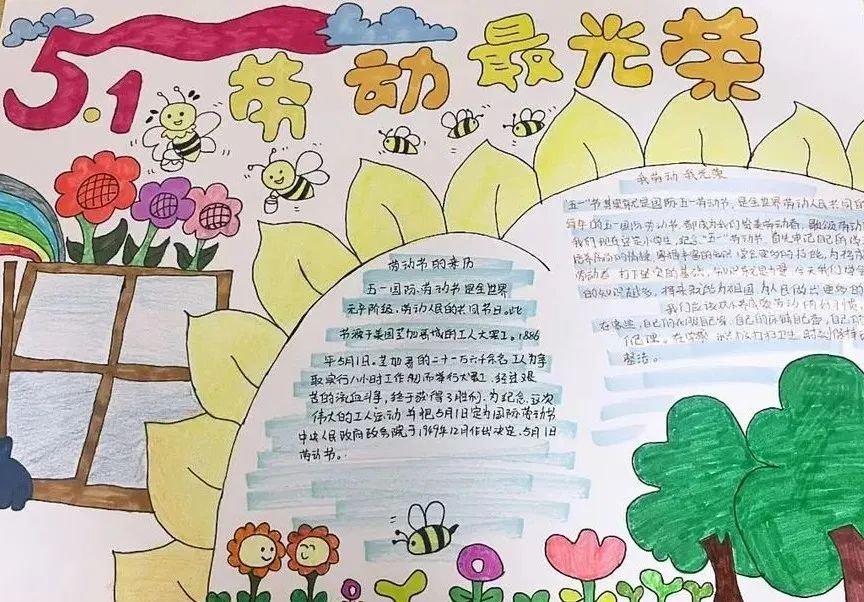 5.1 劳动最光荣
劳动节的来历
五一国际劳动节是全世界
无产阶级、劳动人民的共同节日。此
节源于美国芝加哥城的工人大罢工。1886
年5月1日,芝加哥的二十一万六千余名工人为争
取实行八小时工作制而举行大罢工,经过艰
苦的流血斗争,终于获得了胜利,为纪念这次
伟大的工人运动并把5月1日定为国际劳动节
中央人民政府政务院于1949年12月作出决定,5月1日
劳动节。
我劳动 我光荣
五一节其里就是国际五一劳动节,是全世界劳动人民共同的
每年的五一国际劳动节,都成为我们赞美劳动者,
我们现在是小学生,纪念"五一"劳动节,首先牢记自己的
劳动者 打下坚实的基础。知识就是力量,今天我们学
的知识越多,将来就能为祖国为人民做出更多的
我们应该从小养成爱劳动的好习惯
在家里,自己的衣服自己穿,自己的房间自己
整洁。